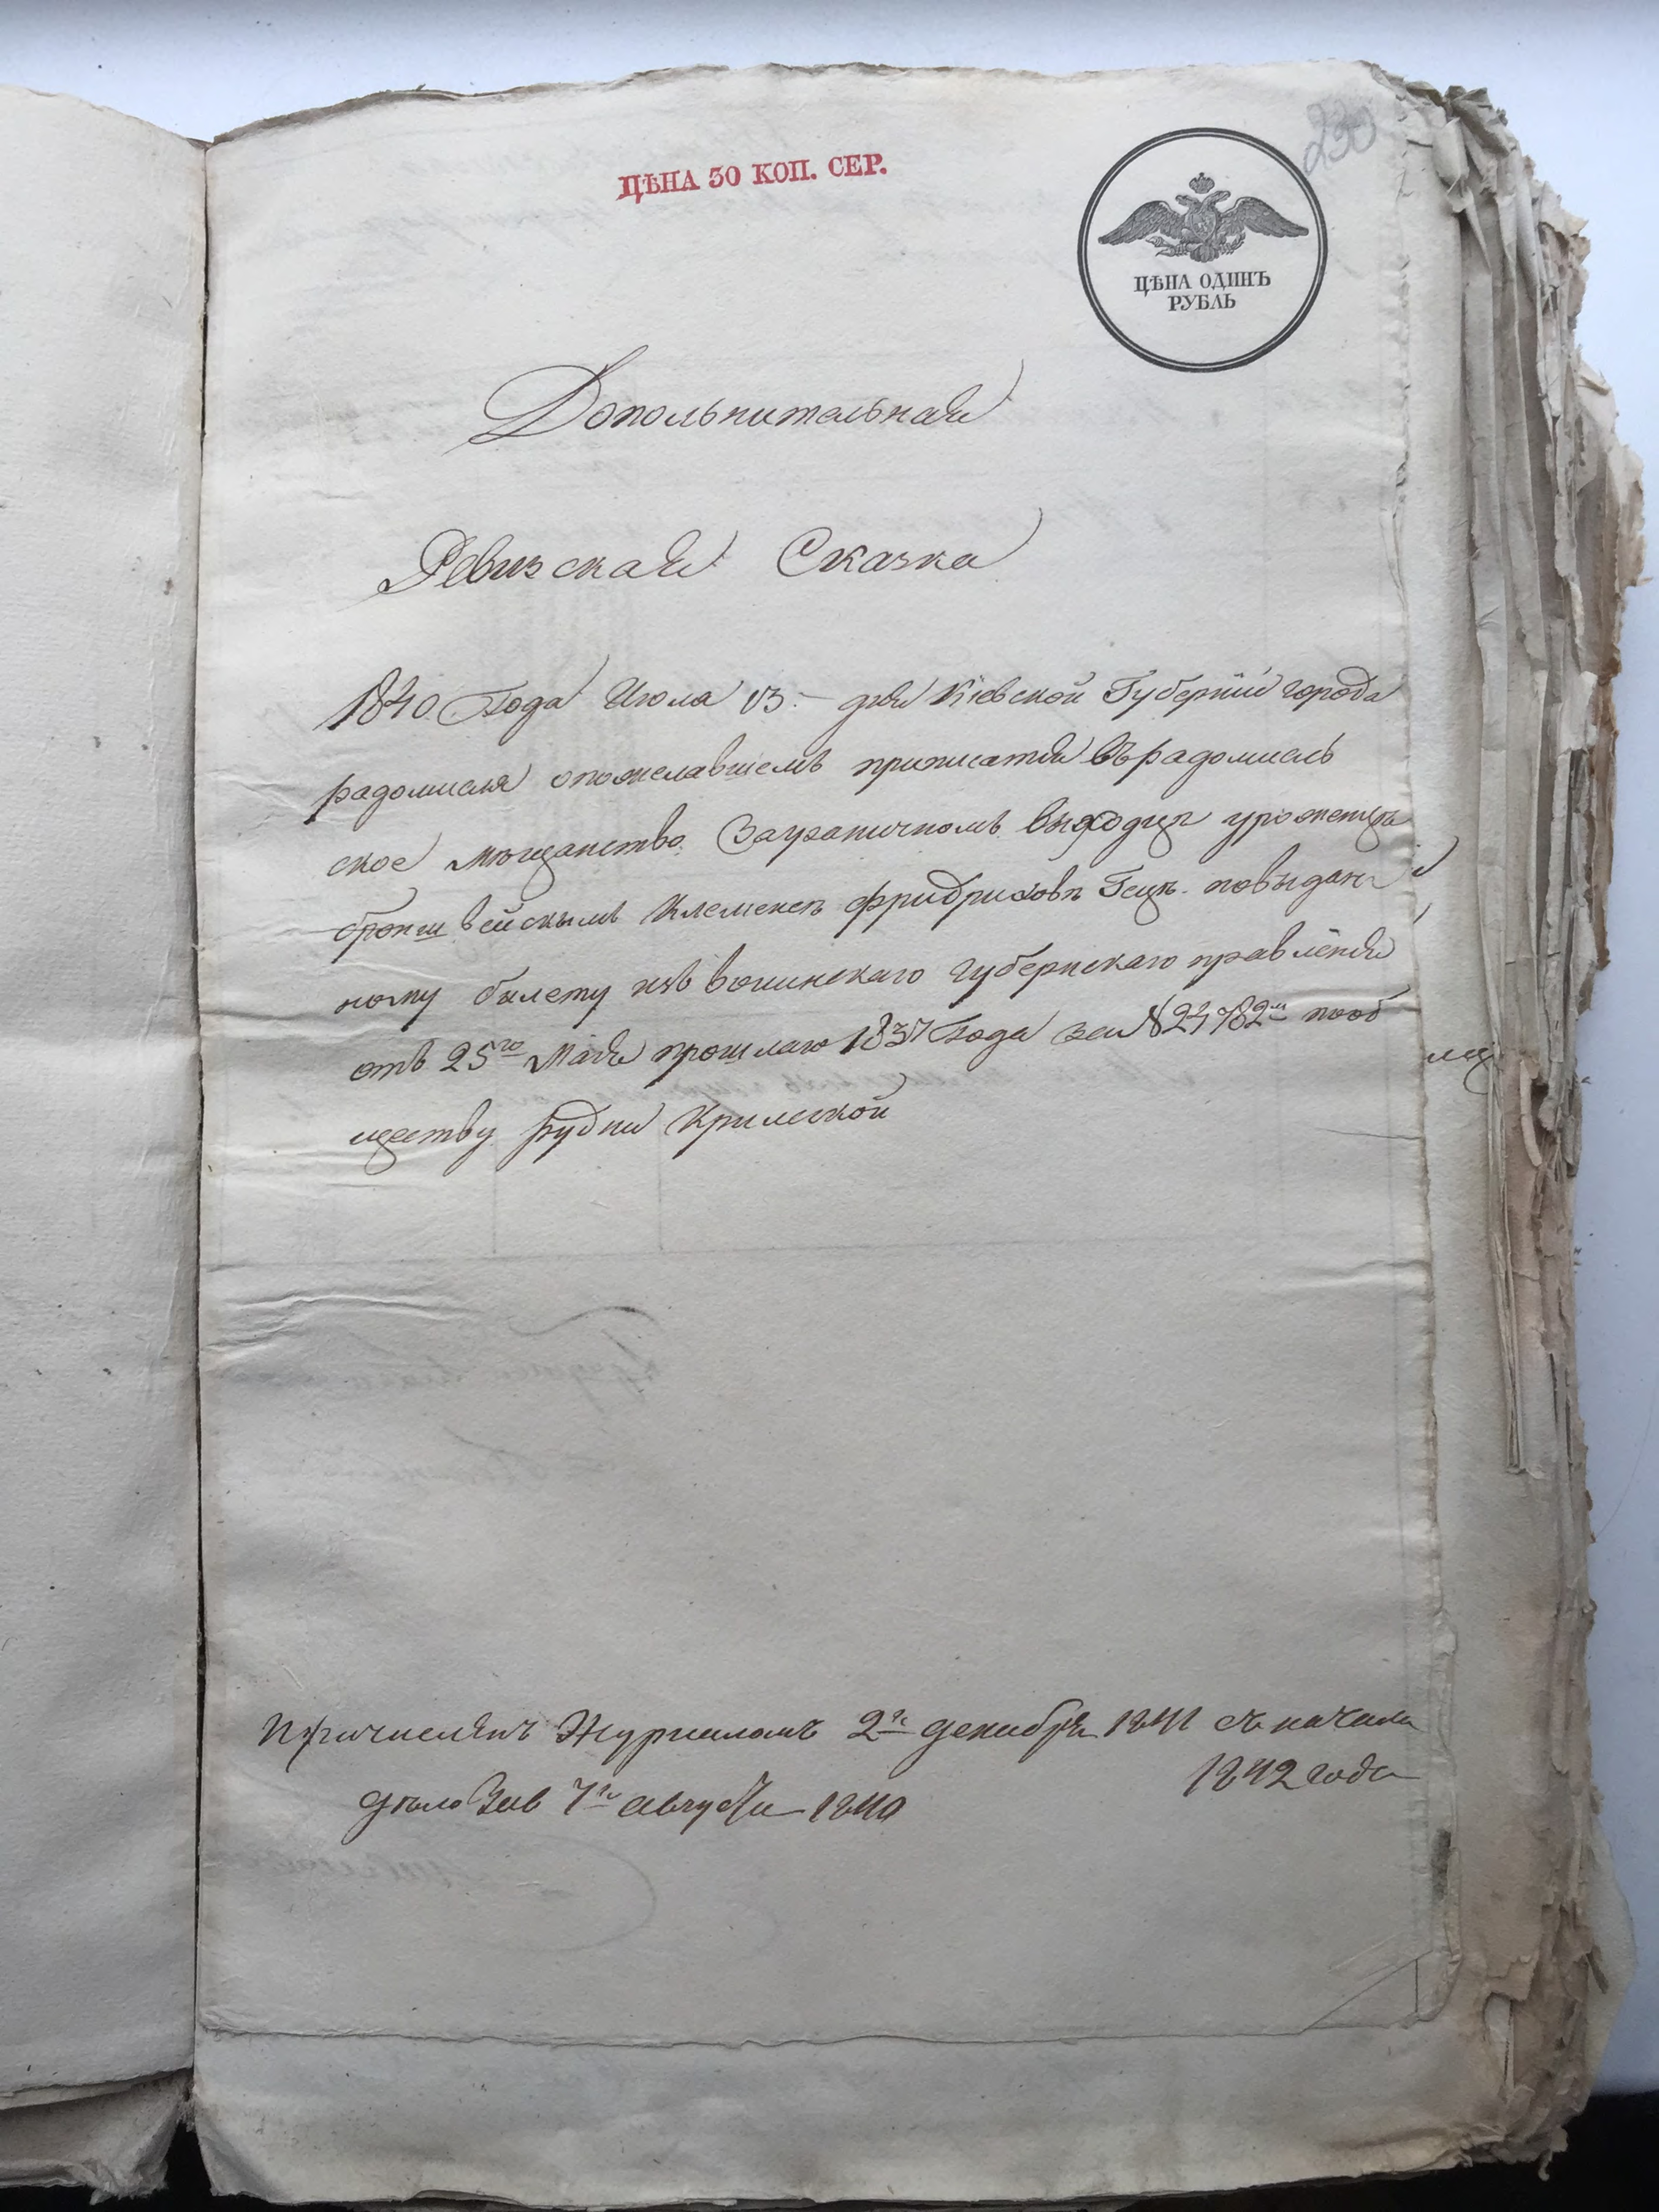 230
ЦѢНА 30 КОП. СЕР.
ЦѢНА ОДИНЪ
РУБЛЬ
Дополнительная
Ревизская Сказка
1840 Года Июля 13 дня Кіевской Губерніи города
радомисля опожелавшемъ приписатся въ радомисль
ское мѣщанство Заграничномъ выходцѣ уроженцѣ
броншвейскымъ Клеменсѣ фридриховѣ Гецъ повыдан
ному билету изъ волинскаго губернскаго правленія
отъ 25го Мая прошлаго 1837 Года за № 24782м пооб
ществу рудни Кримской
Причисленъ Журналомъ 2го декабря 1841 съ начала
1842 года
дѣло 7го августа 1840